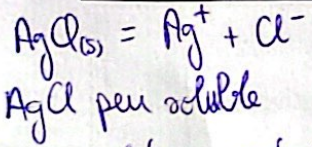 AgCl(s) = Ag⁺ + Cl⁻
AgCl peu soluble